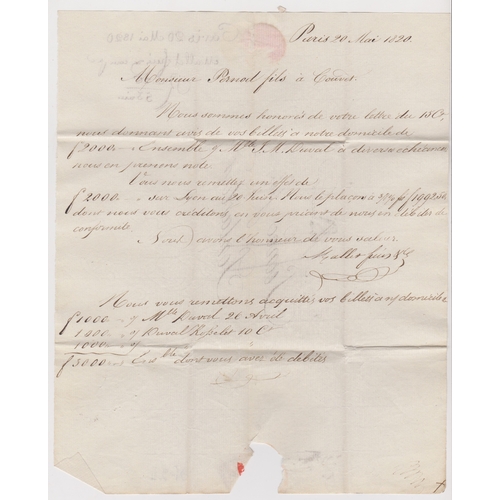 Paris 20 Mai 1820.
Monsieur Pernod fils à Couvet.
Nous sommes honorés de votre lettre du 15 Ct,
nous donnant avis de vos billets à notre domicile de
f 2000.— Ensemble J. Duval à diverses échéances
nous en prenons note
Vous nous remettez un effet de
f 2000.— sur Lyon au 20 Juin. Nous le plaçons à f 1992.50
dont nous vous créditons, en vous priant de nous en débiter de
conformité.
Nous avons l'honneur de vous saluer.
Mallet frères & Ce
Nous vous remettons acquittés vos billets à nos domicile
f 1000 Duval 20 Avril
1000 Duval 10 Ct
1000
f 3000 Ensble dont vous avez de débités